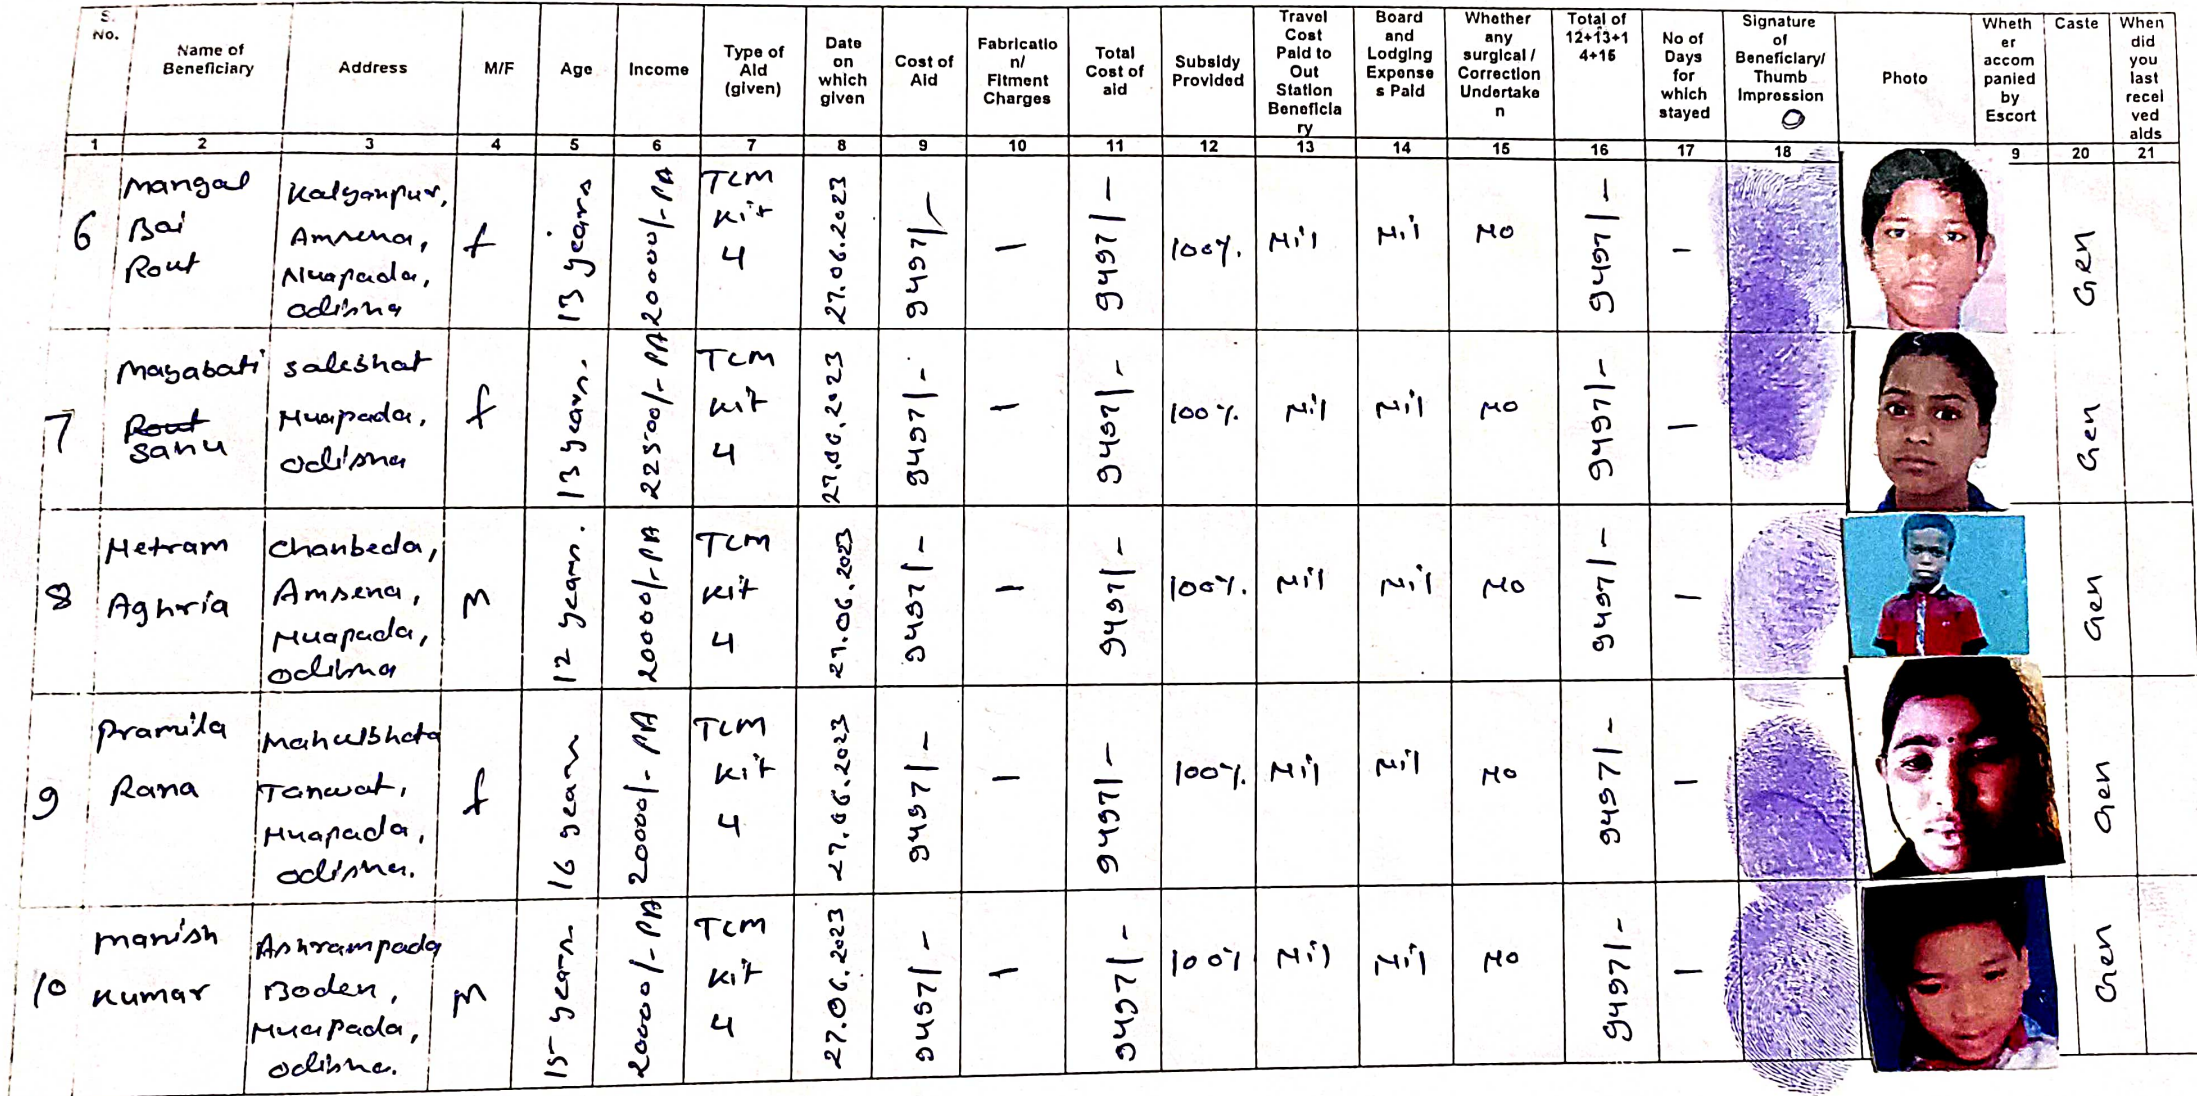 S. No. | Name of Beneficiary | Address | M/F | Age | Income | Type of Aid (given) | Date on which given | Cost of Aid | Fabricatio n/ Fitment Charges | Total Cost of aid | Subsidy Provided | Travel Cost Paid to Out Station Beneficia ry | Board and Lodging Expense s Paid | Whether any surgical / Correction Undertake n | Total of 12+13+1 4+15 | No of Days for which stayed | Signature of Beneficiary/ Thumb Impression | Photo | Wheth er accom panied by Escort | Caste | When did you last recei ved aids
1 | 2 | 3 | 4 | 5 | 6 | 7 | 8 | 9 | 10 | 11 | 12 | 13 | 14 | 15 | 16 | 17 | 18 | 9 | 20 | 21
6 | Mangal Bai Rout | Kalyanpur, Amsena, Nuapada, Odisha | f | 13 years | 20000/- PA | TLM Kit 4 | 27.06.2023 | 9497/- | – | 9497/- | 100%. | Nil | Nil | No | 9497/- | – | Gen
7 | Mayabati Sahu | Saleshat Nuapada, Odisha | f | 13 years. | 22500/- PA | TLM Kit 4 | 27.06.2023 | 9497/- | – | 9497/- | 100%. | Nil | Nil | No | 9497/- | – | Gen
8 | Netram Aghria | Chanbeda, Amsena, Nuapada, Odisha | M | 12 years. | 20000/- PA | TLM Kit 4 | 27.06.2023 | 9497/- | – | 9497/- | 100%. | Nil | Nil | No | 9497/- | – | Gen
9 | Pramila Rana | Mahulbhata Tanwat, Nuapada, Odisha. | f | 16 years | 20000/- PA | TLM Kit 4 | 27.06.2023 | 9497/- | – | 9497/- | 100%. | Nil | Nil | No | 9497/- | – | Gen
10 | Manish Kumar | Ashrampada Boden, Nuapada, Odisha. | M | 15 years | 20000/- PA | TLM Kit 4 | 27.06.2023 | 9497/- | – | 9497/- | 100% | Nil | Nil | No | 9497/- | – | Gen